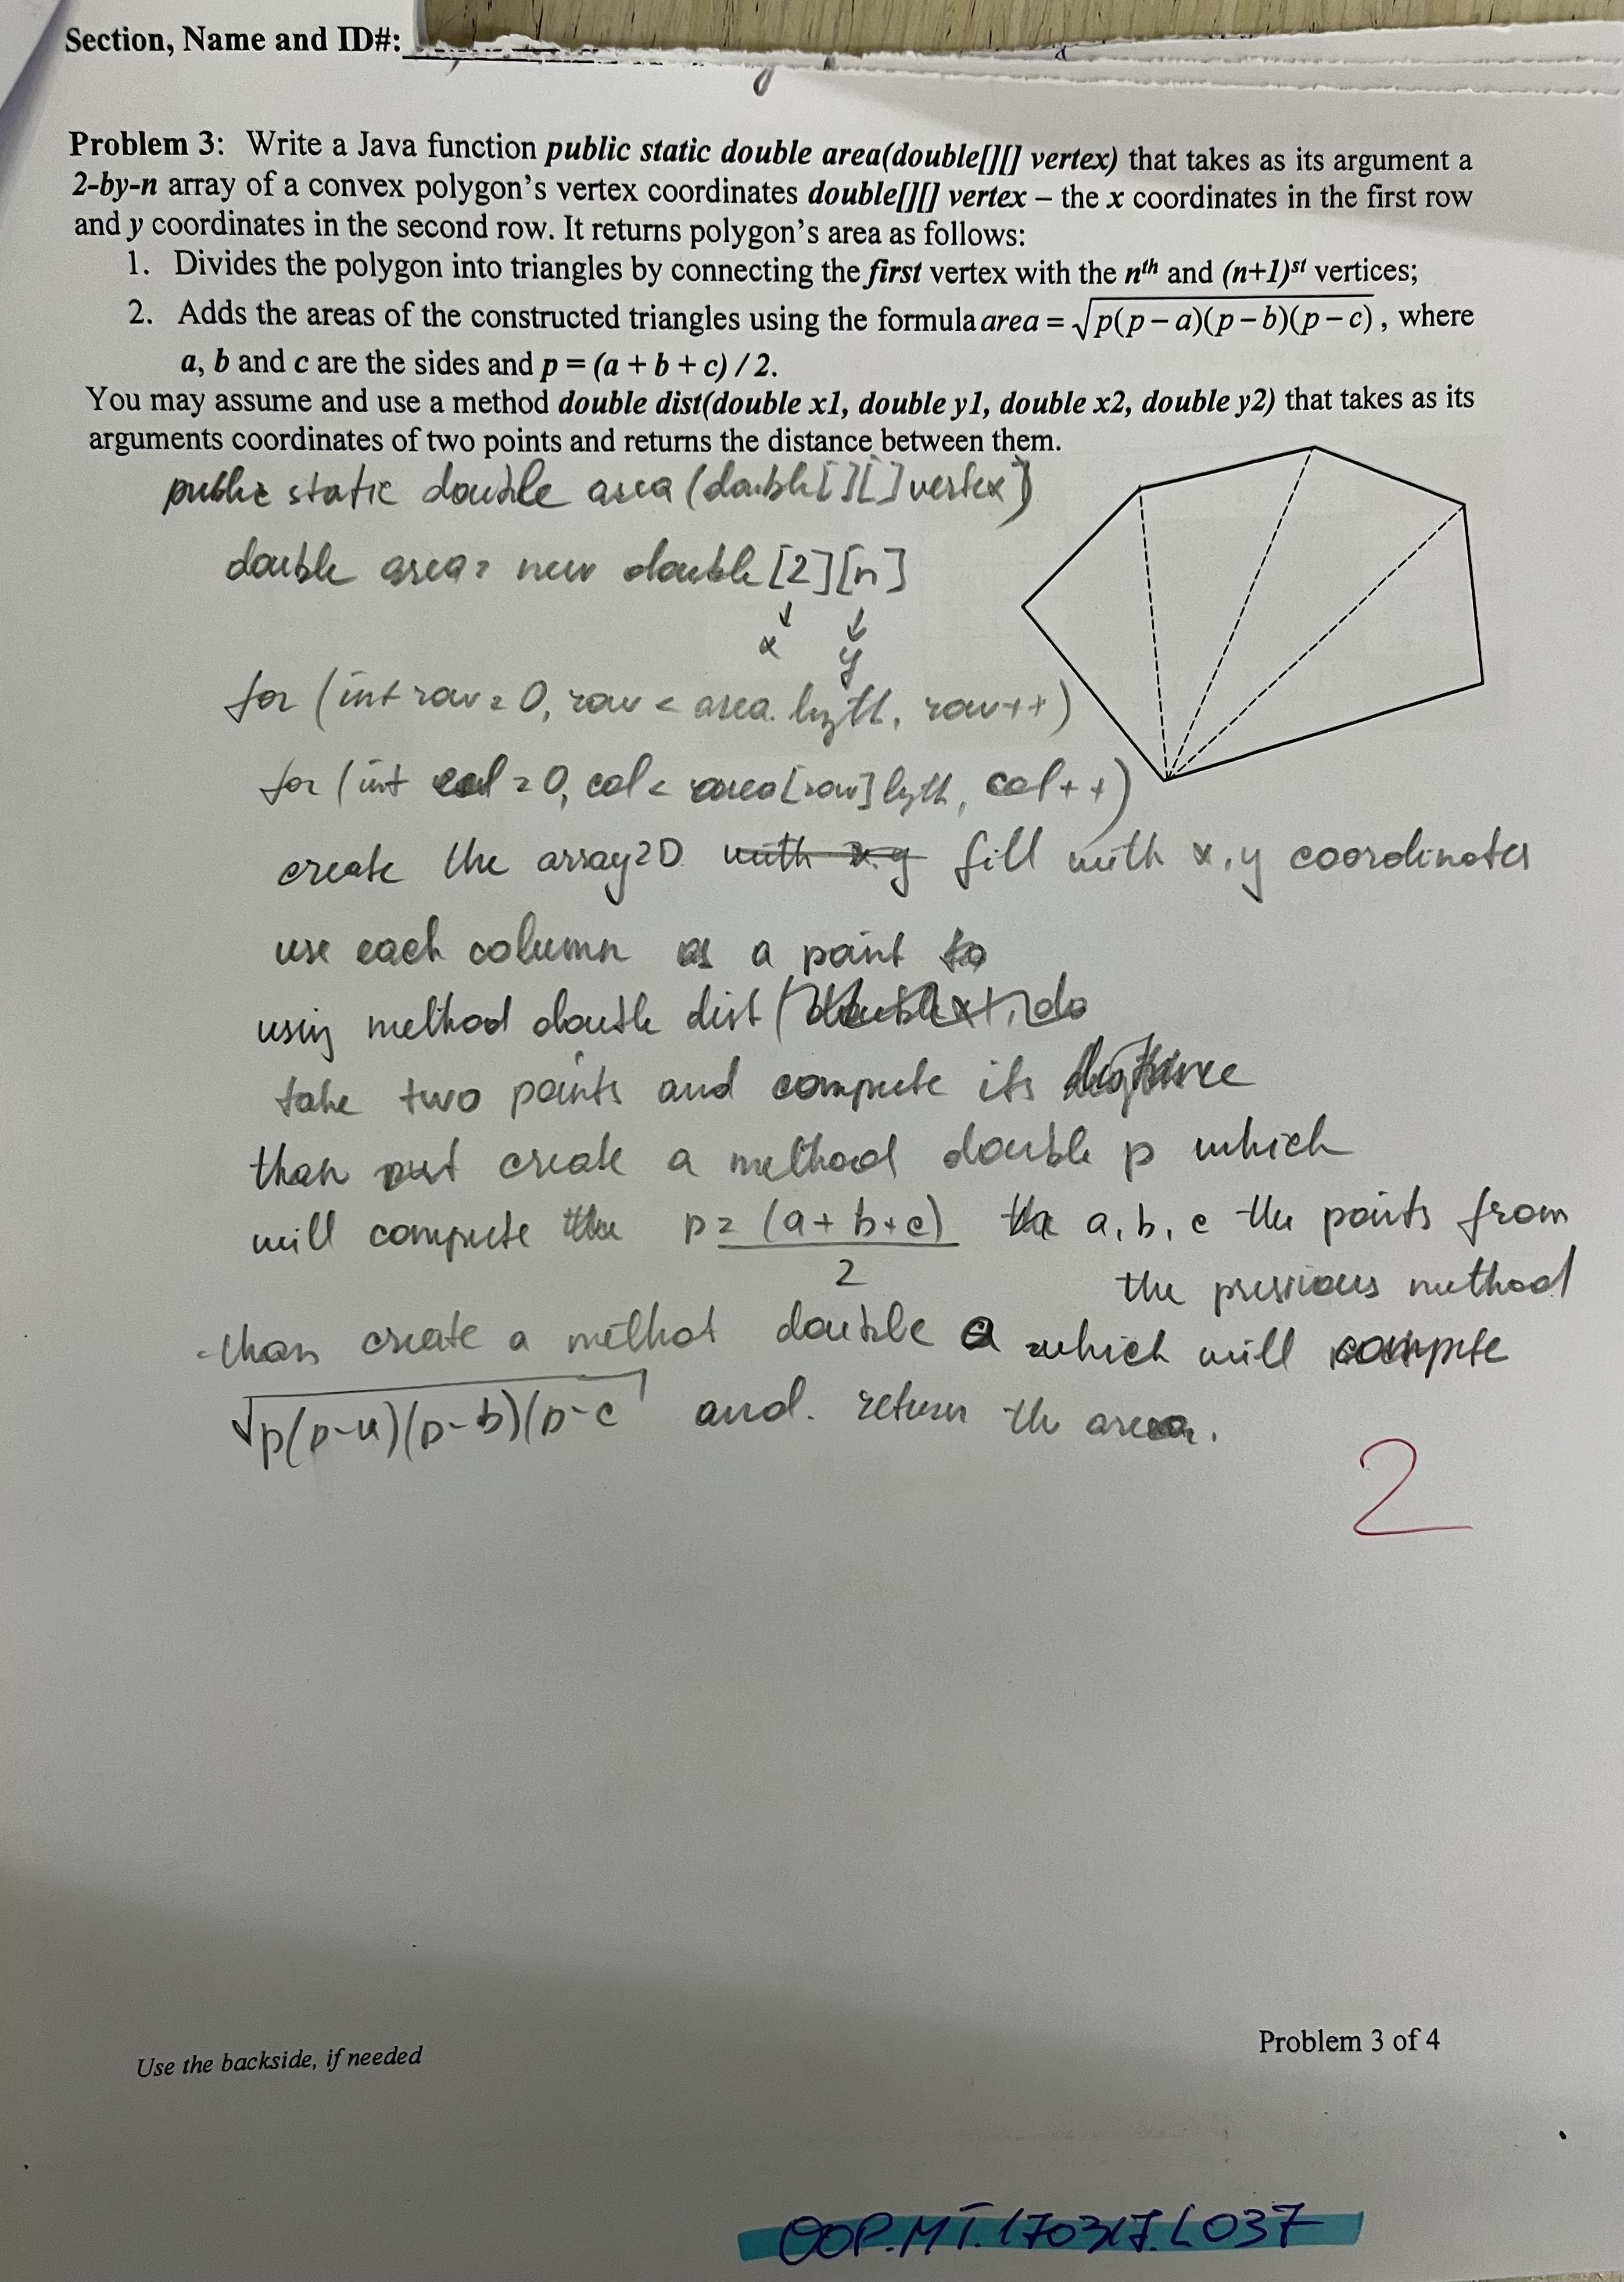 Section, Name and ID#:
Problem 3: Write a Java function public static double area(double[][] vertex) that takes as its argument a
2-by-n array of a convex polygon's vertex coordinates double[][] vertex – the x coordinates in the first row
and y coordinates in the second row. It returns polygon's area as follows:
1. Divides the polygon into triangles by connecting the first vertex with the nth and (n+1)st vertices;
2. Adds the areas of the constructed triangles using the formula area = √p(p – a)(p – b)(p – c) , where
a, b and c are the sides and p = (a + b + c) / 2.
You may assume and use a method double dist(double x1, double y1, double x2, double y2) that takes as its
arguments coordinates of two points and returns the distance between them.
public static double area (double[][] vertex)
double area = new double [2][n]
x y
for (int row = 0, row < area. length, row++)
for (int col = 0, col < area[row] length, col++)
create the array 2D with x.y fill with x, y coordinates
use each column as a point to
using method double dist (
take two points and compute its distance
than create a method double p which
will compute the p = (a + b + c) the a, b, c the points from
2 the previous method
than create a methot double a which will compute
√p(p-a)(p-b)(p-c and. return the area.
2
Use the backside, if needed
Problem 3 of 4
OOP.MT.170317.L037